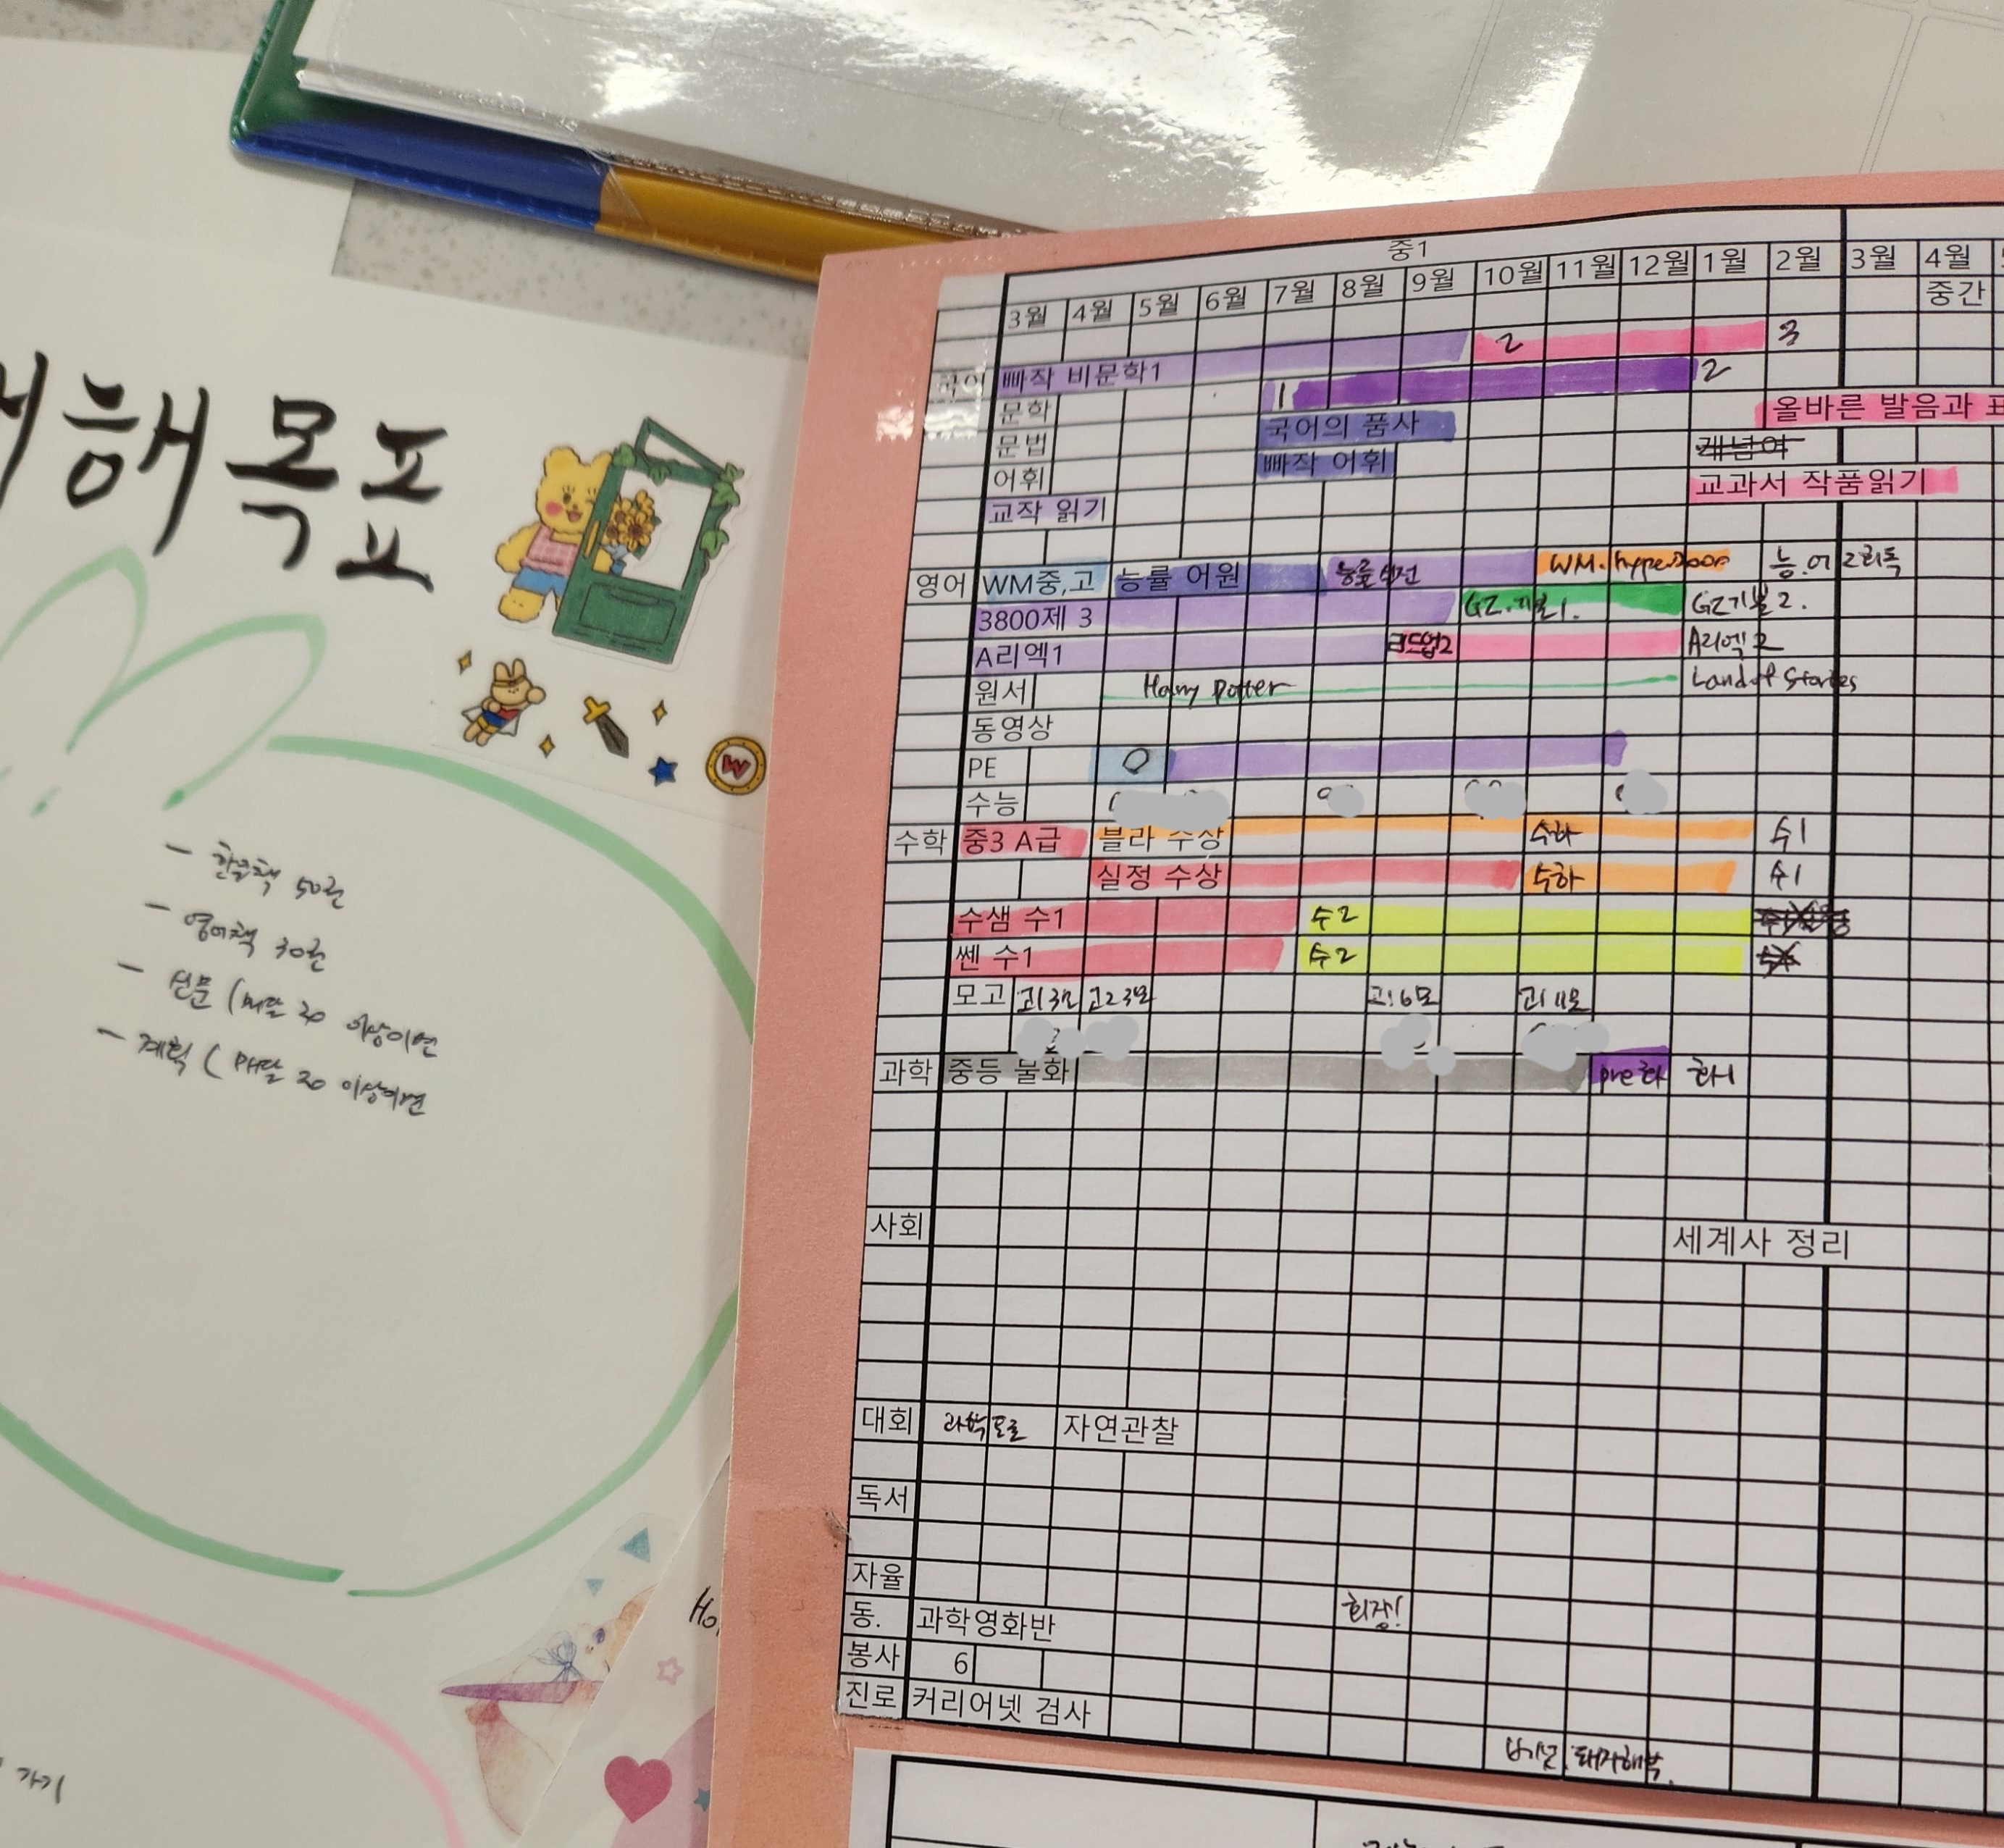 해 목표
- 한글책 50권
- 영어책 30권
- 신문 (매달 20 이상이면
- 계획 ( 매달 20 이상이면
가기
Ho
W
중1
3월 4월 5월 6월 7월 8월 9월 10월 11월 12월 1월 2월 3월 4월
중간
국어 빠작 비문학1 2 3
문학 1 2
문법 국어의 품사 올바른 발음과 표
어휘 빠작 어휘 개념어
교작 읽기 교과서 작품읽기
영어 WM중,고 능률 어원 능률 실전 WM.hyperdoor 능.어 2회독
3800제 3 GZ.기본1. GZ기본2.
A리엑1 리드업2 A리엑2
원서 Harry Potter Land of Stories
동영상
PE 0
수능
수학 중3 A급 블라 수상 수하 수1
실정 수상 수하 수1
수샘 수1 수2
쎈 수1 수2
모고 고13모 고23모 고16모 고111모
과학 중등 물화 pre화 화1
사회 세계사 정리
대회 과학토론 자연관찰
독서
자율
동. 과학영화반 회장!
봉사 6
진로 커리어넷 검사
돼지해부.